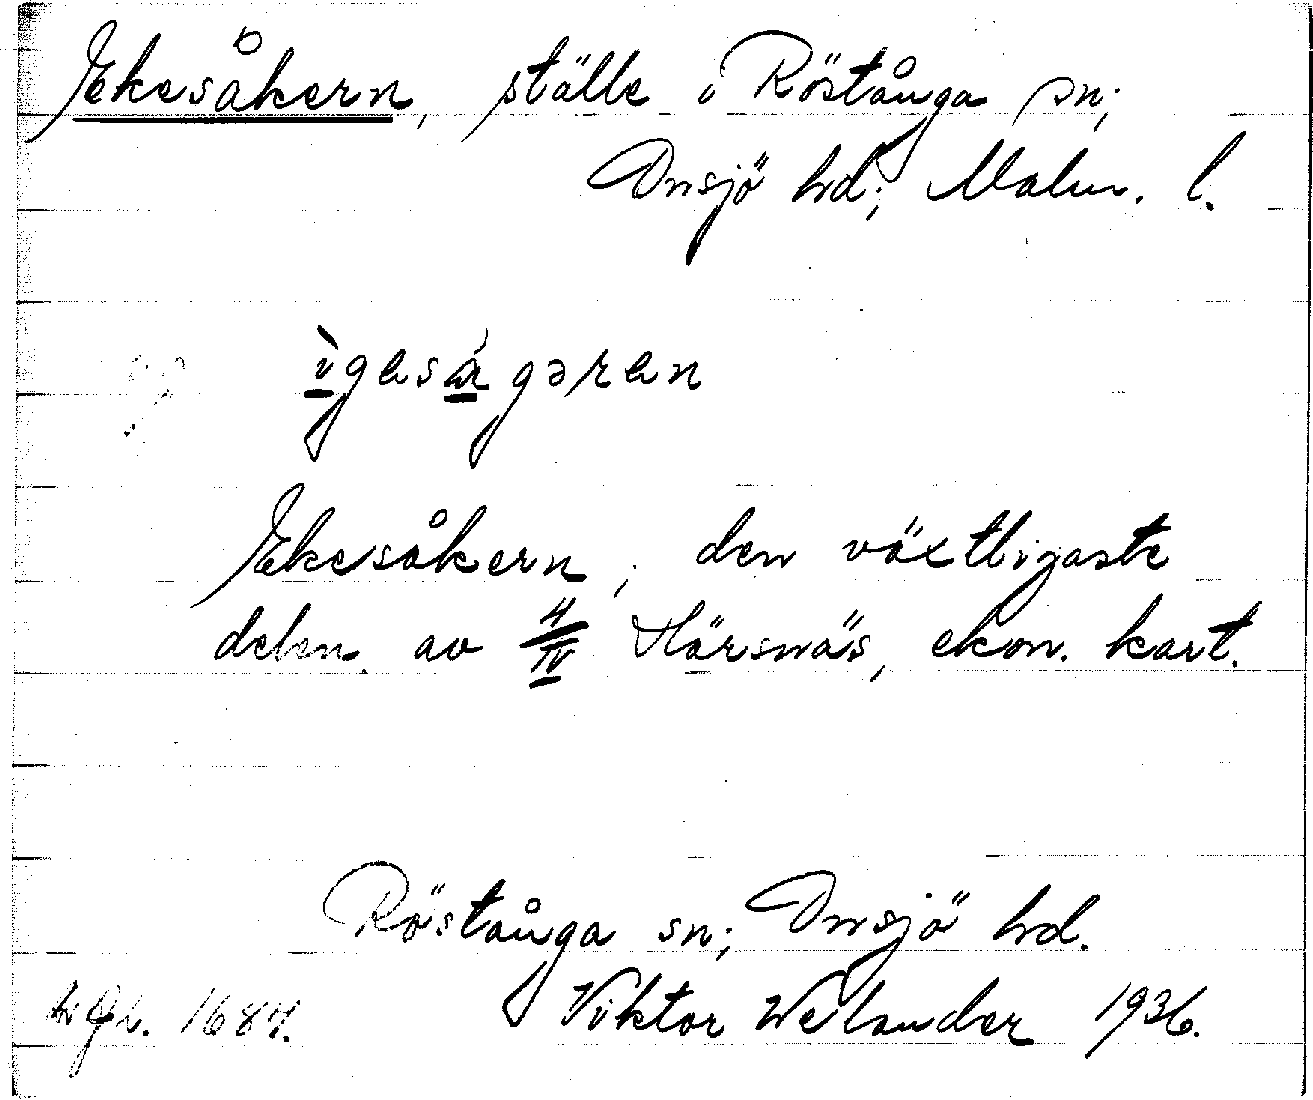 Ekesåkern, ställe i Röstånga sn;
Onsjö hd; Malm. l.
ìgeságəren
Ekesåkern, den växtligaste
delen av 4/IV Härsnäs, ekon. kart.
Röstånga sn; Onsjö hd.
1687. Viktor Welander 1936.